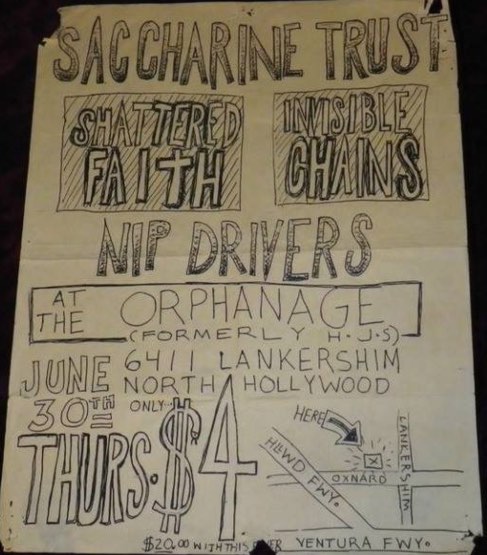 SACCHARINE TRUST
SHATTERED FAITH
INVISIBLE CHAINS
NIP DRIVERS
AT THE ORPHANAGE
(FORMERLY H.J.S)
6411 LANKERSHIM
NORTH HOLLYWOOD
JUNE 30TH
THURS.
ONLY $4
HERE
LANKERSHIM
OXNARD
HLLWD FWY.
VENTURA FWY.
$20.00 WITH THIS